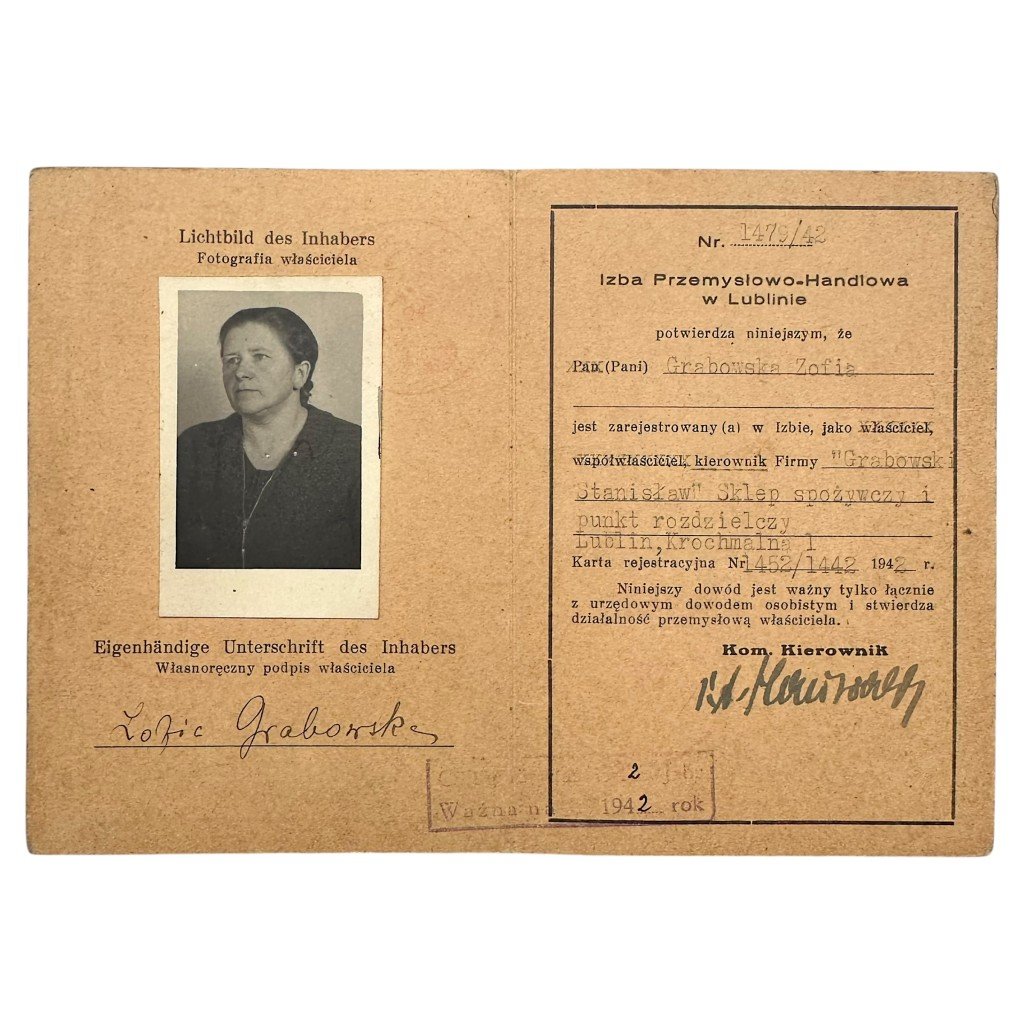 Lichtbild des Inhabers
Fotografia właściciela
Eigenhändige Unterschrift des Inhabers
Własnoręczny podpis właściciela
Zofia Grabowska
Nr. 1479/42
Izba Przemysłowo-Handlowa
w Lublinie
potwierdza niniejszym, że
Pan (Pani) Grabowska Zofia
jest zarejestrowany (a) w Izbie, jako właściciel,
współwłaściciel, kierownik Firmy "Grabowski
Stanisław" Sklep spożywczy i
punkt rozdzielczy
Lublin, Krochmalna 1
Karta rejestracyjna Nr 1452/1442 1942 r.
Niniejszy dowód jest ważny tylko łącznie
z urzędowym dowodem osobistym i stwierdza
działalność przemysłową właściciela.
Kom. Kierownik
2
Ważna na 1942 rok